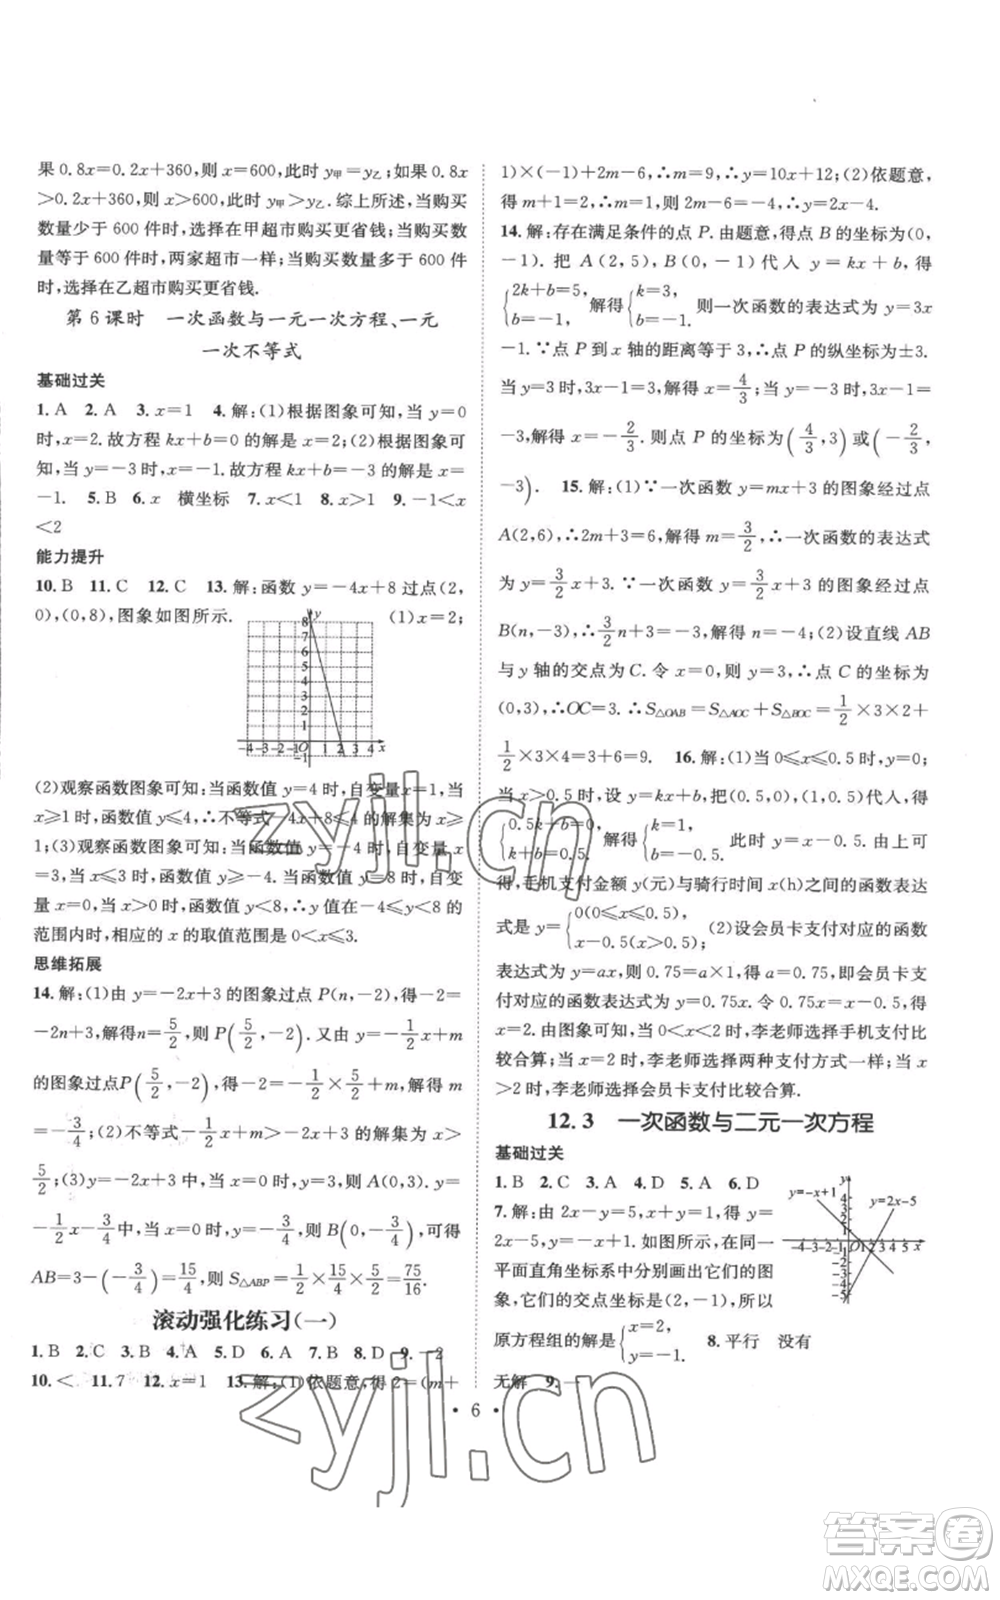 果 0.8x=0.2x+360,则 x=600,此时 y甲=y乙;如果 0.8x
>0.2x+360,则 x>600,此时 y甲>y乙.综上所述,当购买
数量少于 600 件时,在甲超市购买更省钱;当购买数
数量等于 600 件时,两家超市一样;当购买数量多于 600 件
时,选择在乙超市购买更省钱.
第 6 课时 一次函数与一元一次方程、一元
一次不等式
基础过关
1. A 2. A 3. x=1 4. 解:(1)根据图象可知,当 y=0
时,x=2.故方程 kx+b=0 的解是 x=2;(2)根据图象可
知,当 y=-3 时,x=-1.故方程 kx+b=-3 的解是 x=
-1. 5. B 6. x 横坐标 7. x<1 8. x>1 9. -1<x
<2
能力提升
10. B 11. C 12. C 13. 解:函数 y=-4x+8 过点(2,
0),(0,8),图象如图所示. (1)x=2;
(2)观察函数图象可知:当函数值 y=4 时,自变量 x=1,当
x≥1 时,函数值 y≤4,∴不等式-4x+8≤4 的解集为 x≥
1;(3)观察函数图象可知:当函数值 y=-4 时,自变量 x
=3,当 x≤3 时,函数值 y≥-4.当函数值 y=8 时,自变量
x=0,当 x>0 时,函数值 y<8,∴当 y 值在-4≤y<8 的
范围内时,相应的 x 的取值范围是 0<x≤3.
思维拓展
14. 解:(1)由 y=-2x+3 的图象过点 P(n,-2),得-2=
-2n+3,解得n=5/2,则 P(5/2,-2). 又由 y=-1/2x+m
的图象过点P(5/2,-2),得-2=-1/2×5/2+m,解得 m
=-3/4;(2)不等式-1/2x+m>-2x+3 的解集为 x>
5/2;(3)y=-2x+3 中,当 x=0 时,y=3,则 A(0,3).y=
-1/2x-3/4中,当 x=0 时,y=-3/4,则 B(0,-3/4),可得
AB=3-(-3/4)=15/4,则 S△ABP=1/2×15/4×5/2=75/16.
滚动强化练习(一)
1. B 2. C 3. B 4. A 5. D 6. A 7. B 8. D 9. -2
10. < 11. 7 12. x=1 13. 解:(1)依题意,得 2=(m+
1)×(-1)+2m-6,∴m=9,∴y=10x+12;(2)依题意,
得 m+1=2,解得 m=1,则 2m-6=-4,∴y=2x-4.
14. 解:存在满足条件的点 P.由题意,得点 B 的坐标为(0,
-1). 把 A(2,5),B(0,-1)代入 y=kx+b,得
{2k+b=5, b=-1, 解得{k=3, b=-1. 则一次函数的表达式为 y=3x
-1.∵点 P 到 x 轴的距离等于 3,∴点 P 的纵坐标为±3.
当 y=3 时,3=3x-1,解得 x=4/3;当 y=-3 时,3x-1=
-3,解得 x=-2/3.则点 P 的坐标为(4/3,3)或(-2/3,
-3). 15. 解:(1)∵一次函数 y=mx+3 的图象经过点
A(2,6),∴2m+3=6,解得 m=3/2,∴一次函数的表达式
为 y=3/2x+3.∵一次函数 y=3/2x+3 的图象经过点
B(n,-3),∴3/2n+3=-3,解得 n=-4;(2)设直线 AB
与 y 轴的交点为 C.令 x=0,则 y=3,∴点 C 的坐标为
(0,3),∴OC=3.∴S△OAB=S△AOC+S△BOC=1/2×3×2+
1/2×3×4=3+6=9. 16. 解:(1)当 0≤x≤0.5 时,y=0.
当 x>0.5 时,设 y=kx+b,把(0.5,0),(1,0.5)代入,得
{0.5k+b=0, k+b=0.5, 解得{k=1, b=-0.5. 此时 y=x-0.5. 由上可
得,手机支付金额 y(元)与骑行时间 x(h)之间的函数表达
式是 y={0(0≤x≤0.5), x-0.5(x>0.5);(2)设会员卡支付对应的函数
表达式为 y=ax,则 0.75=a×1,得 a=0.75,即会员卡支
付对应的函数表达式为 y=0.75x.令 0.75x=x-0.5,得
x=2.由图象可知,当 0<x<2 时,李老师选择手机支付比
较合算;当 x=2 时,李老师选择两种支付方式一样;当 x
>2 时,李老师选择会员卡支付比较合算.
12.3 一次函数与二元一次方程
基础过关
1. B 2. C 3. D 4. A 5. A 6. D
7. 解:由 2x-y=5,得 y=
2x-5,由 x+y=1,得 y=
-x+1.如图所示,在同一
平面直角坐标系中分别画出它们的图
象,它们的交点坐标是(2,-1),所以
原方程组的解是{x=2, y=-1. 8. 平行 没有
无解 9.
y=-x+1
y=2x-5
• 6 •
zyjl.cn
zyjl.cn
答案卷
MXQE.COM